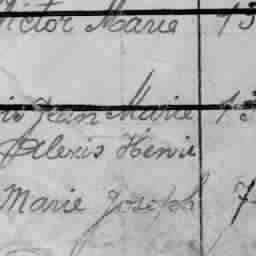 Victor Marie 13
Jean Marie 13
Alexis Henri
Marie Joseph 7